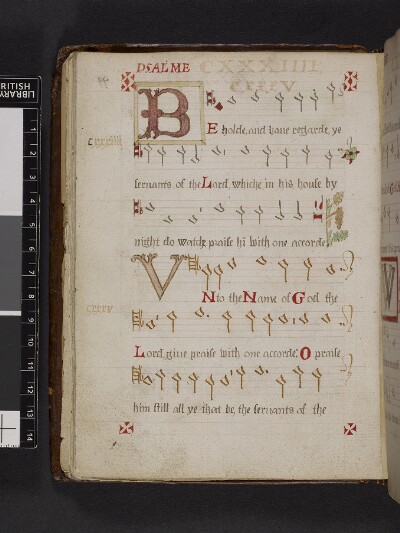 PSALME CXXXIIII
CXXXV
BEholde, and haue regarde, ye
seruants of the Lord, whiche in his house by
night do watch, praise hī with one accorde.
VNto the Name of God the
Lord, giue praise with one accorde: O praise
him still all ye that be, the seruants of the
BRITISH LIBRARY
1
2
3
4
5
6
7
8
9
10
11
12
13
14